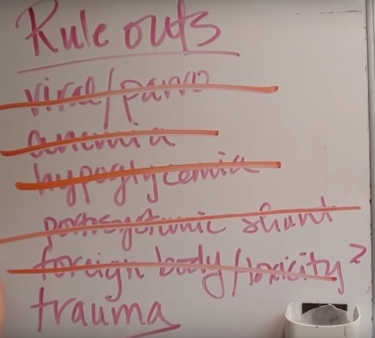 Rule outs
viral/parvo
anemia
hypoglycemia
portosystemic shunt
foreign body/toxicity?
trauma